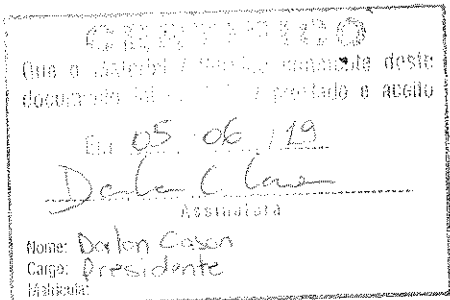 CERTIFICO
Que o material / serviço constante deste
documento foi / prestado e aceito
Em 05 / 06 / 19
Assinatura
Nome: Darlan Casen
Cargo: Presidente
Matrícula: